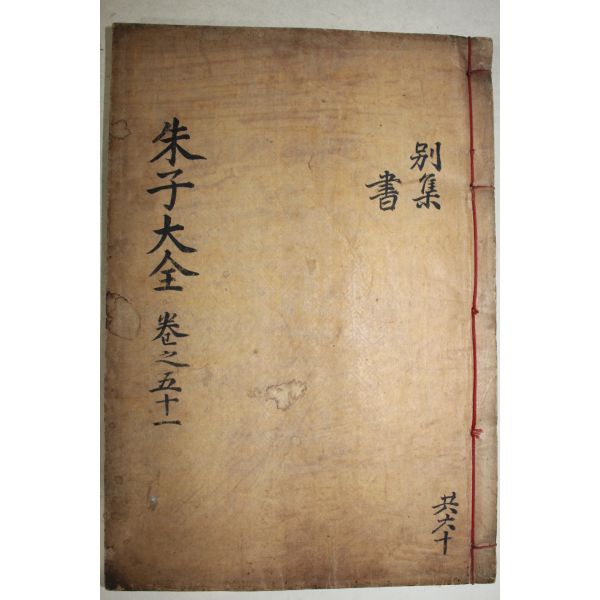 別集
書
朱子大全 卷之五十一
共六十